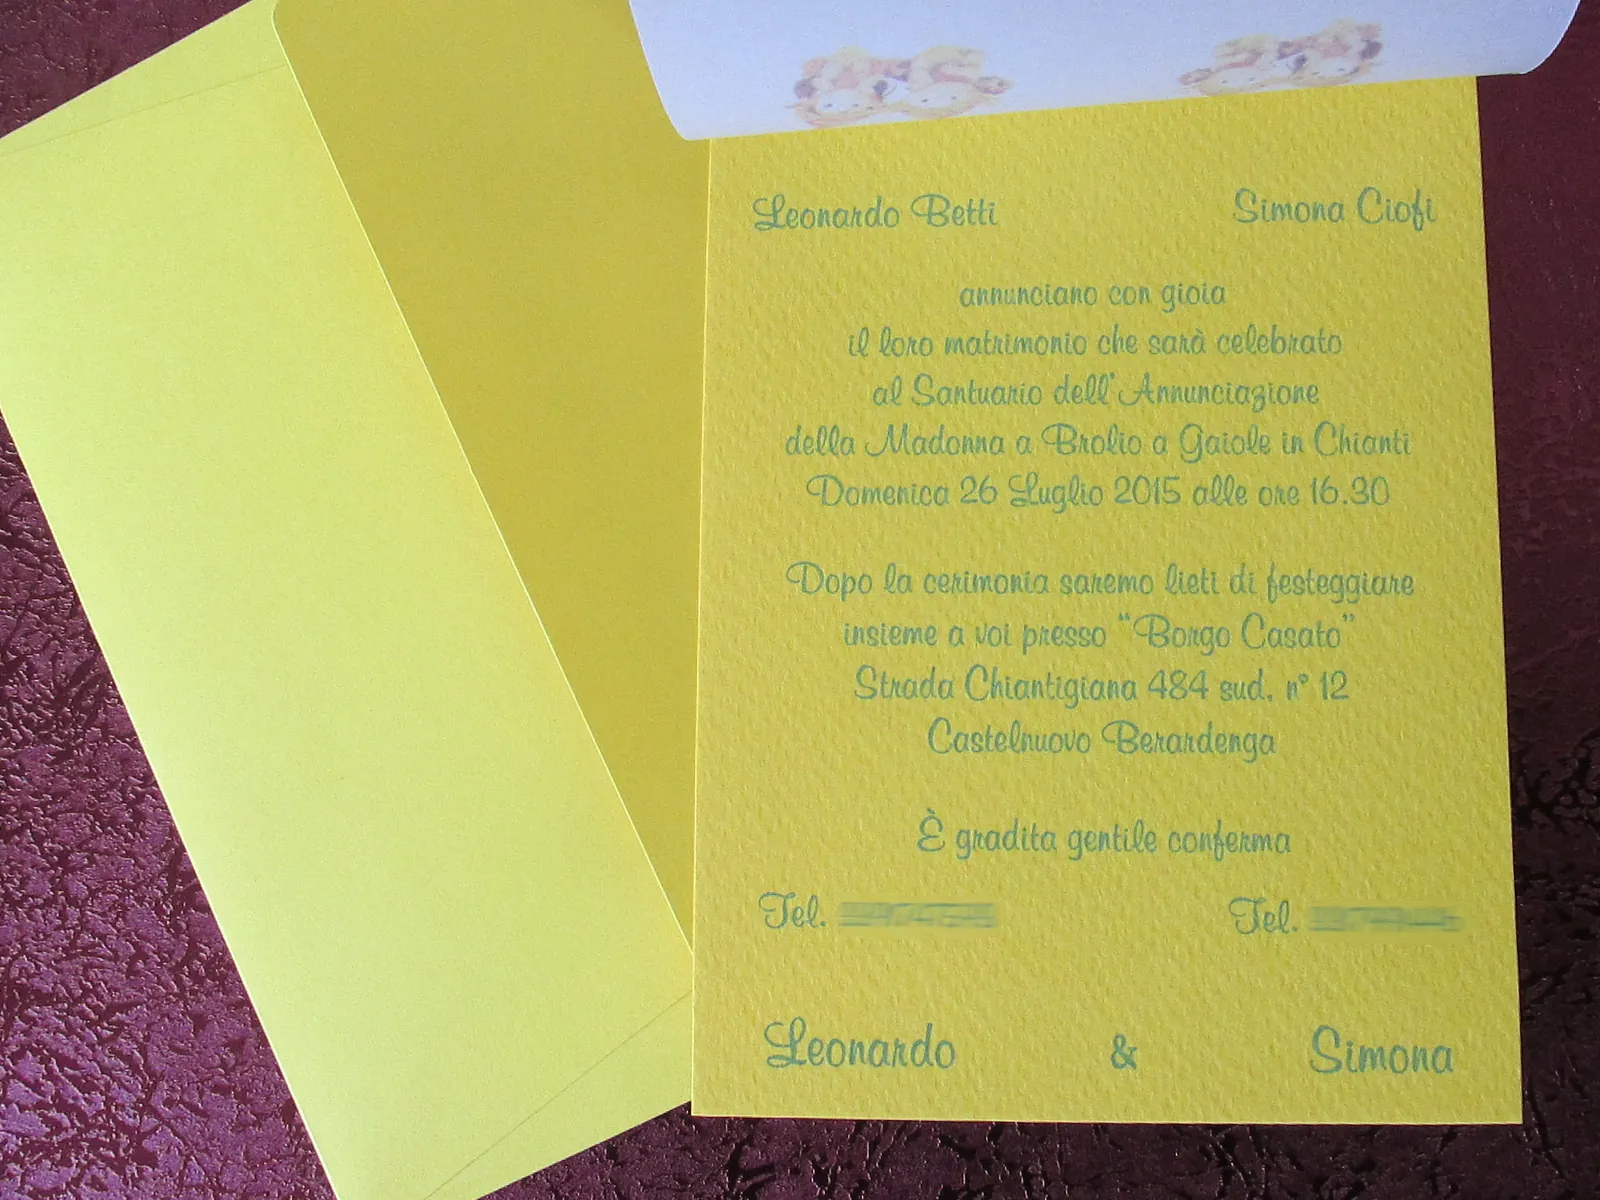 Leonardo Betti Simona Ciofi
annunciano con gioia
il loro matrimonio che sarà celebrato
al Santuario dell'Annunciazione
della Madonna a Brolio a Gaiole in Chianti
Domenica 26 Luglio 2015 alle ore 16.30
Dopo la cerimonia saremo lieti di festeggiare
insieme a voi presso "Borgo Casato"
Strada Chiantigiana 484 sud, n° 12
Castelnuovo Berardenga
È gradita gentile conferma
Tel. Tel.
Leonardo & Simona